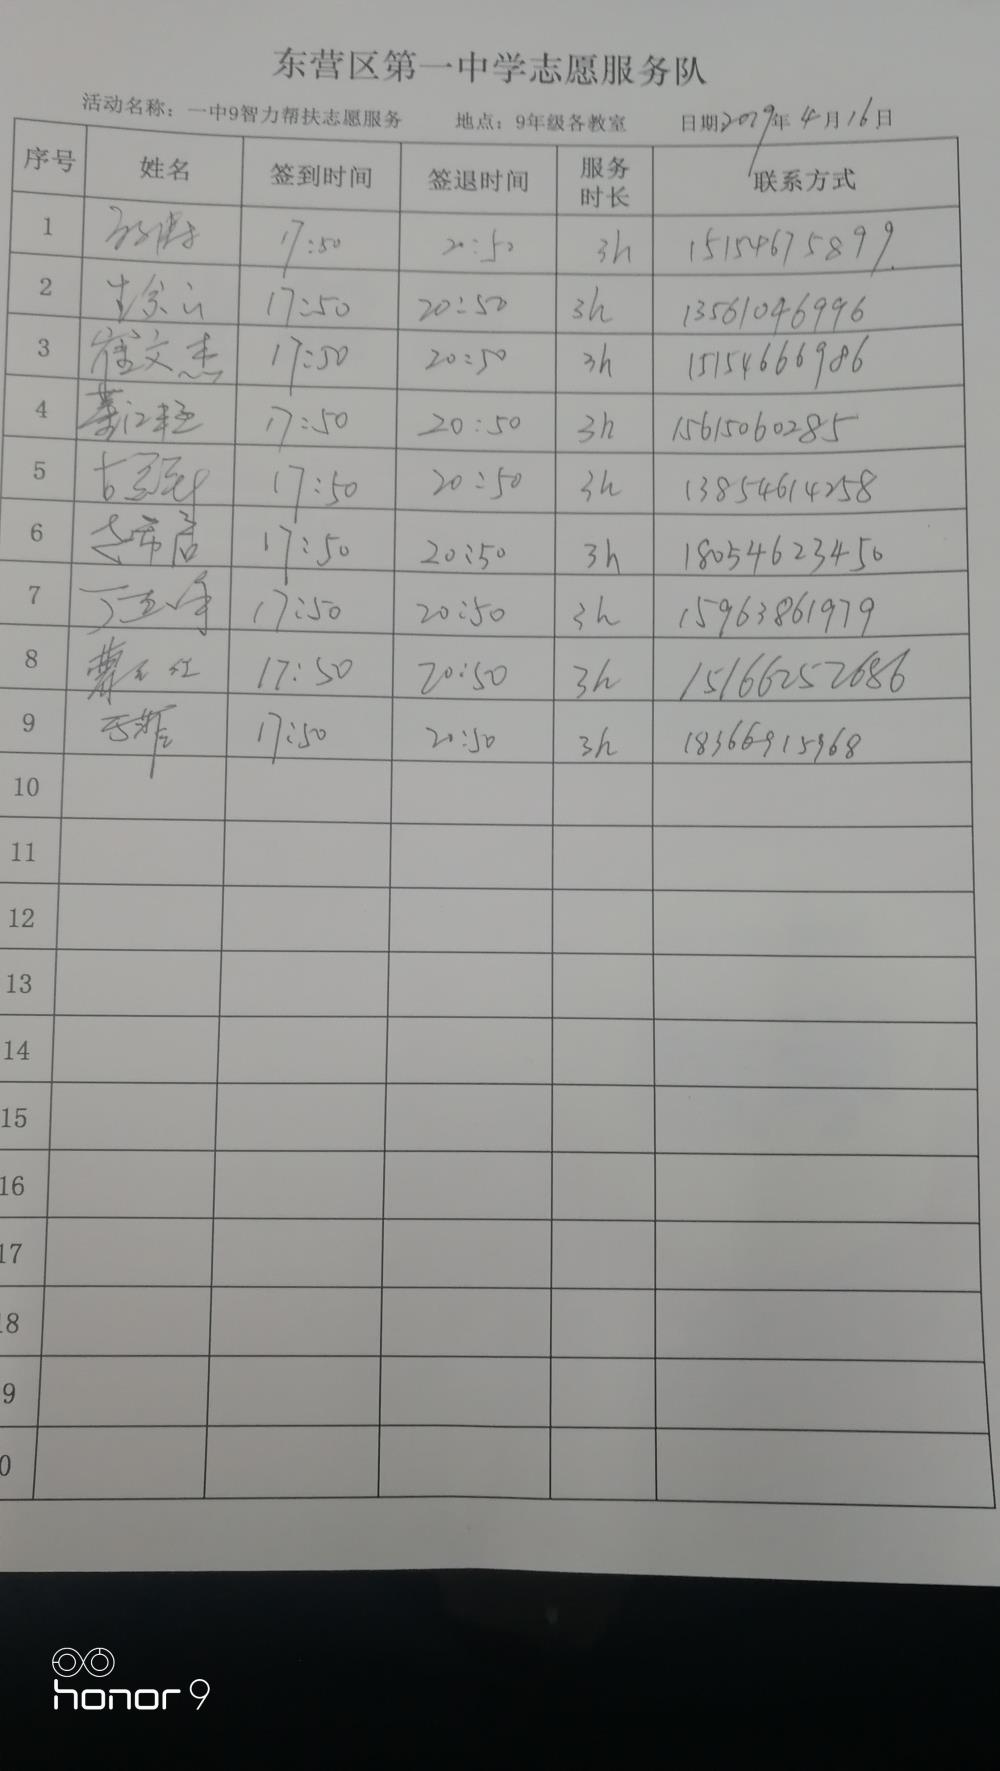 东营区第一中学志愿服务队
活动名称：一中9智力帮扶志愿服务 地点：9年级各教室 日期2019年4月16日
序号 姓名 签到时间 签退时间 服务时长 联系方式
1 17:50 20:50 3h 15154675899
2 17:50 20:50 3h 13561046996
3 崔文杰 17:50 20:50 3h 15154666986
4 17:50 20:50 3h 15615060285
5 17:50 20:50 3h 13854614258
6 17:50 20:50 3h 18054623450
7 17:50 20:50 3h 15963861979
8 17:50 20:50 3h 15166252686
9 17:50 20:50 3h 18366915968
10
11
12
13
14
15
16
17
18
9
0
honor 9